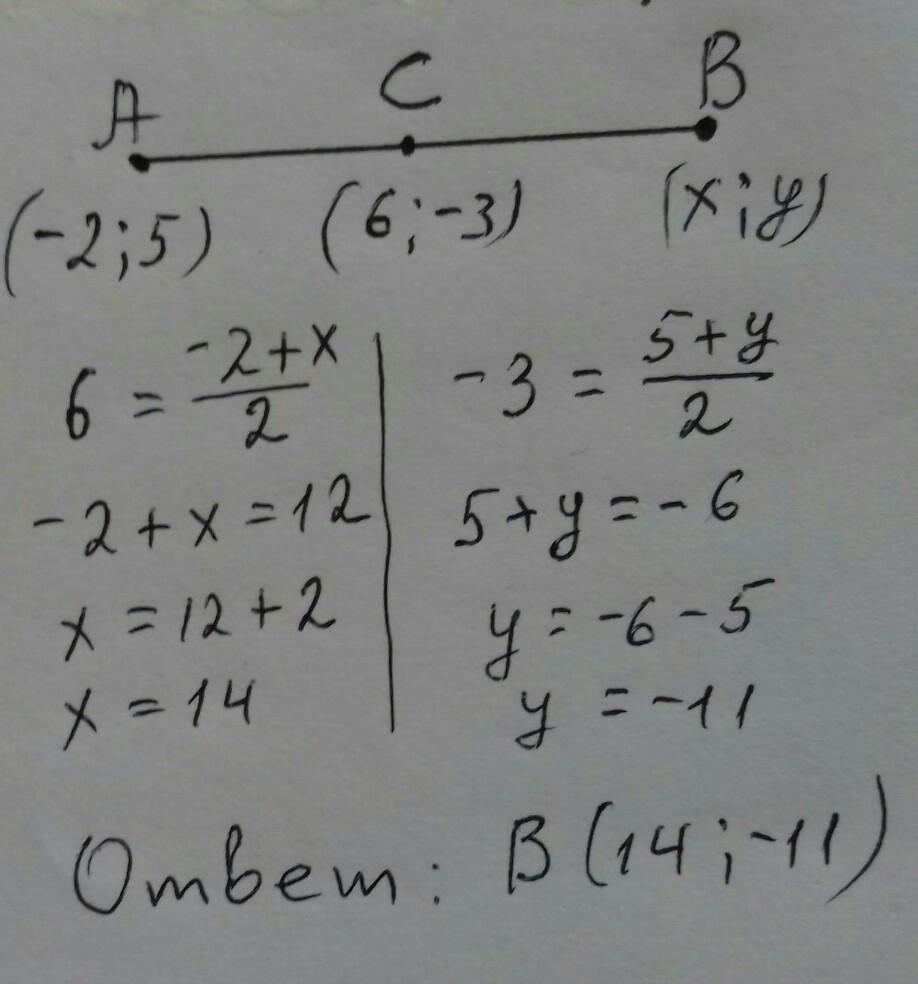 A C B
(-2;5) (6;-3) (x;y)
6 = (-2+x)/2
-2+x=12
x=12+2
x=14
-3 = (5+y)/2
5+y=-6
y=-6-5
y=-11
Ответ: B(14;-11)